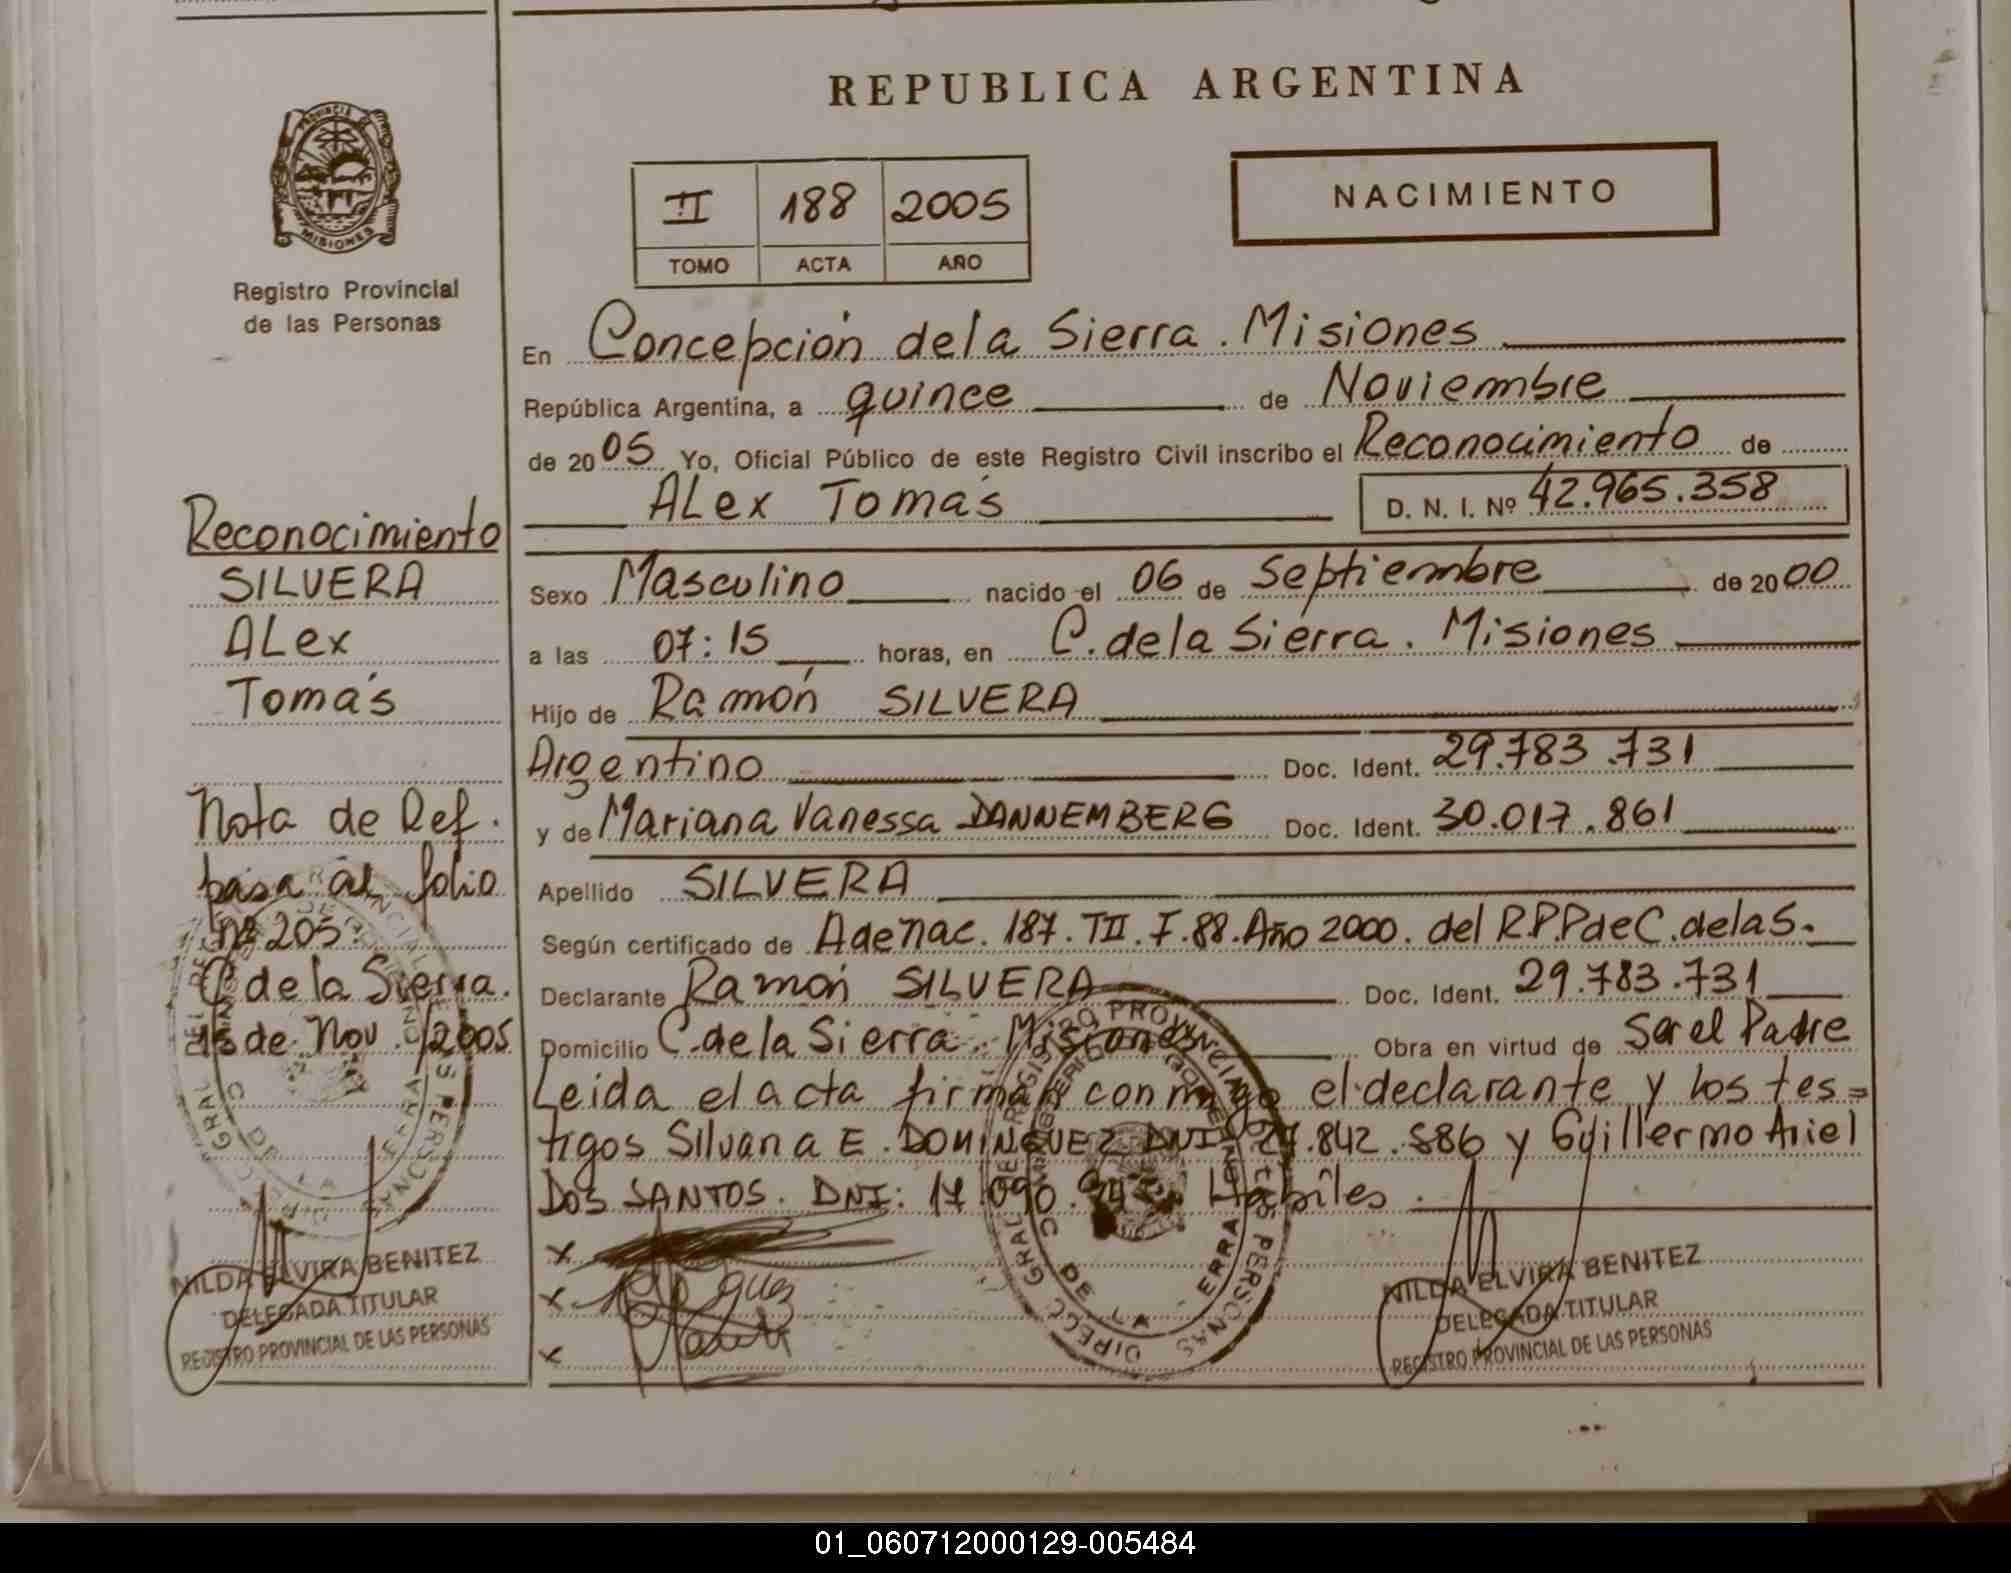 PROVINCIA DE
MISIONES
Registro Provincial
de las Personas
Reconocimiento
SILVERA
ALex
Tomás
Nota de Ref.
pasa al folio
nº 205.
C de la Sierra.
15 de Nov. /2005
NILDA ELVIRA BENITEZ
DELEGADA TITULAR
REGISTRO PROVINCIAL DE LAS PERSONAS
REPUBLICA ARGENTINA
II 188 2005
TOMO ACTA AÑO
NACIMIENTO
En Concepción de la Sierra. Misiones
República Argentina, a quince de Noviembre
de 2005 Yo, Oficial Público de este Registro Civil inscribo el Reconocimiento de
ALex Tomás D. N. I. Nº 42.965.358
Sexo Masculino nacido el 06 de Septiembre de 2000
a las 07:15 horas, en C. de la Sierra. Misiones
Hijo de Ramón SILVERA
Argentino Doc. Ident. 29.783.731
y de Mariana Vanessa DANNEMBERG Doc. Ident. 30.017.861
Apellido SILVERA
Según certificado de Ade nac. 187. TII. F. 88. Año 2000. del R.P.P de C. de la S.
Declarante Ramón SILVERA Doc. Ident. 29.783.731
Domicilio C. de la Sierra. Misiones Obra en virtud de Ser el Padre
Leida el acta firman conmigo el declarante y los tes=
tigos Silvana E. DOMINGUEZ DNI 27.842.886 y Guillermo Ariel
DOS SANTOS. DNI: 17.090. Habiles.
x
x
x
DIRECC. GRAL. DEL REGISTRO PROVINCIAL DE LAS PERSONAS
NILDA ELVIRA BENITEZ
DELEGADA TITULAR
REGISTRO PROVINCIAL DE LAS PERSONAS
01_060712000129-005484